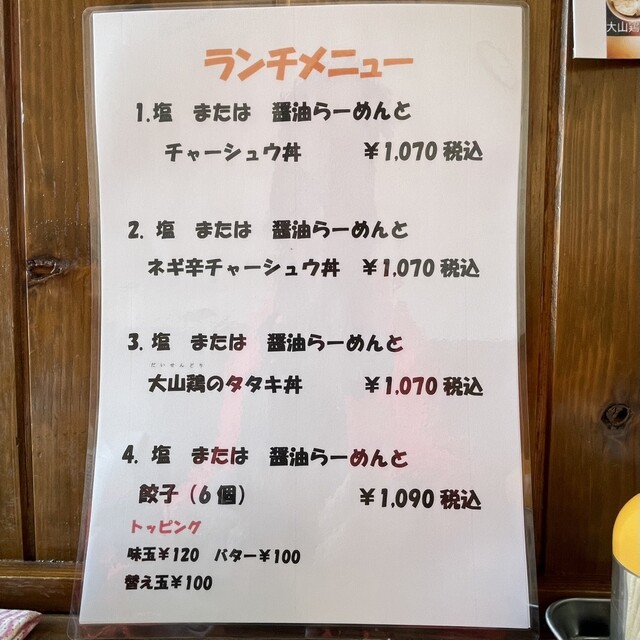 ランチメニュー
1.塩 または 醤油らーめんと
チャーシュウ丼 ￥1,070 税込
2. 塩 または 醤油らーめんと
ネギ辛チャーシュウ丼 ￥1,070 税込
3. 塩 または 醤油らーめんと
だいせんどり
大山鶏のタタキ丼 ￥1,070 税込
4. 塩 または 醤油らーめんと
餃子（6個） ￥1,090 税込
トッピング
味玉￥120 バター￥100
替え玉￥100
大山鶏